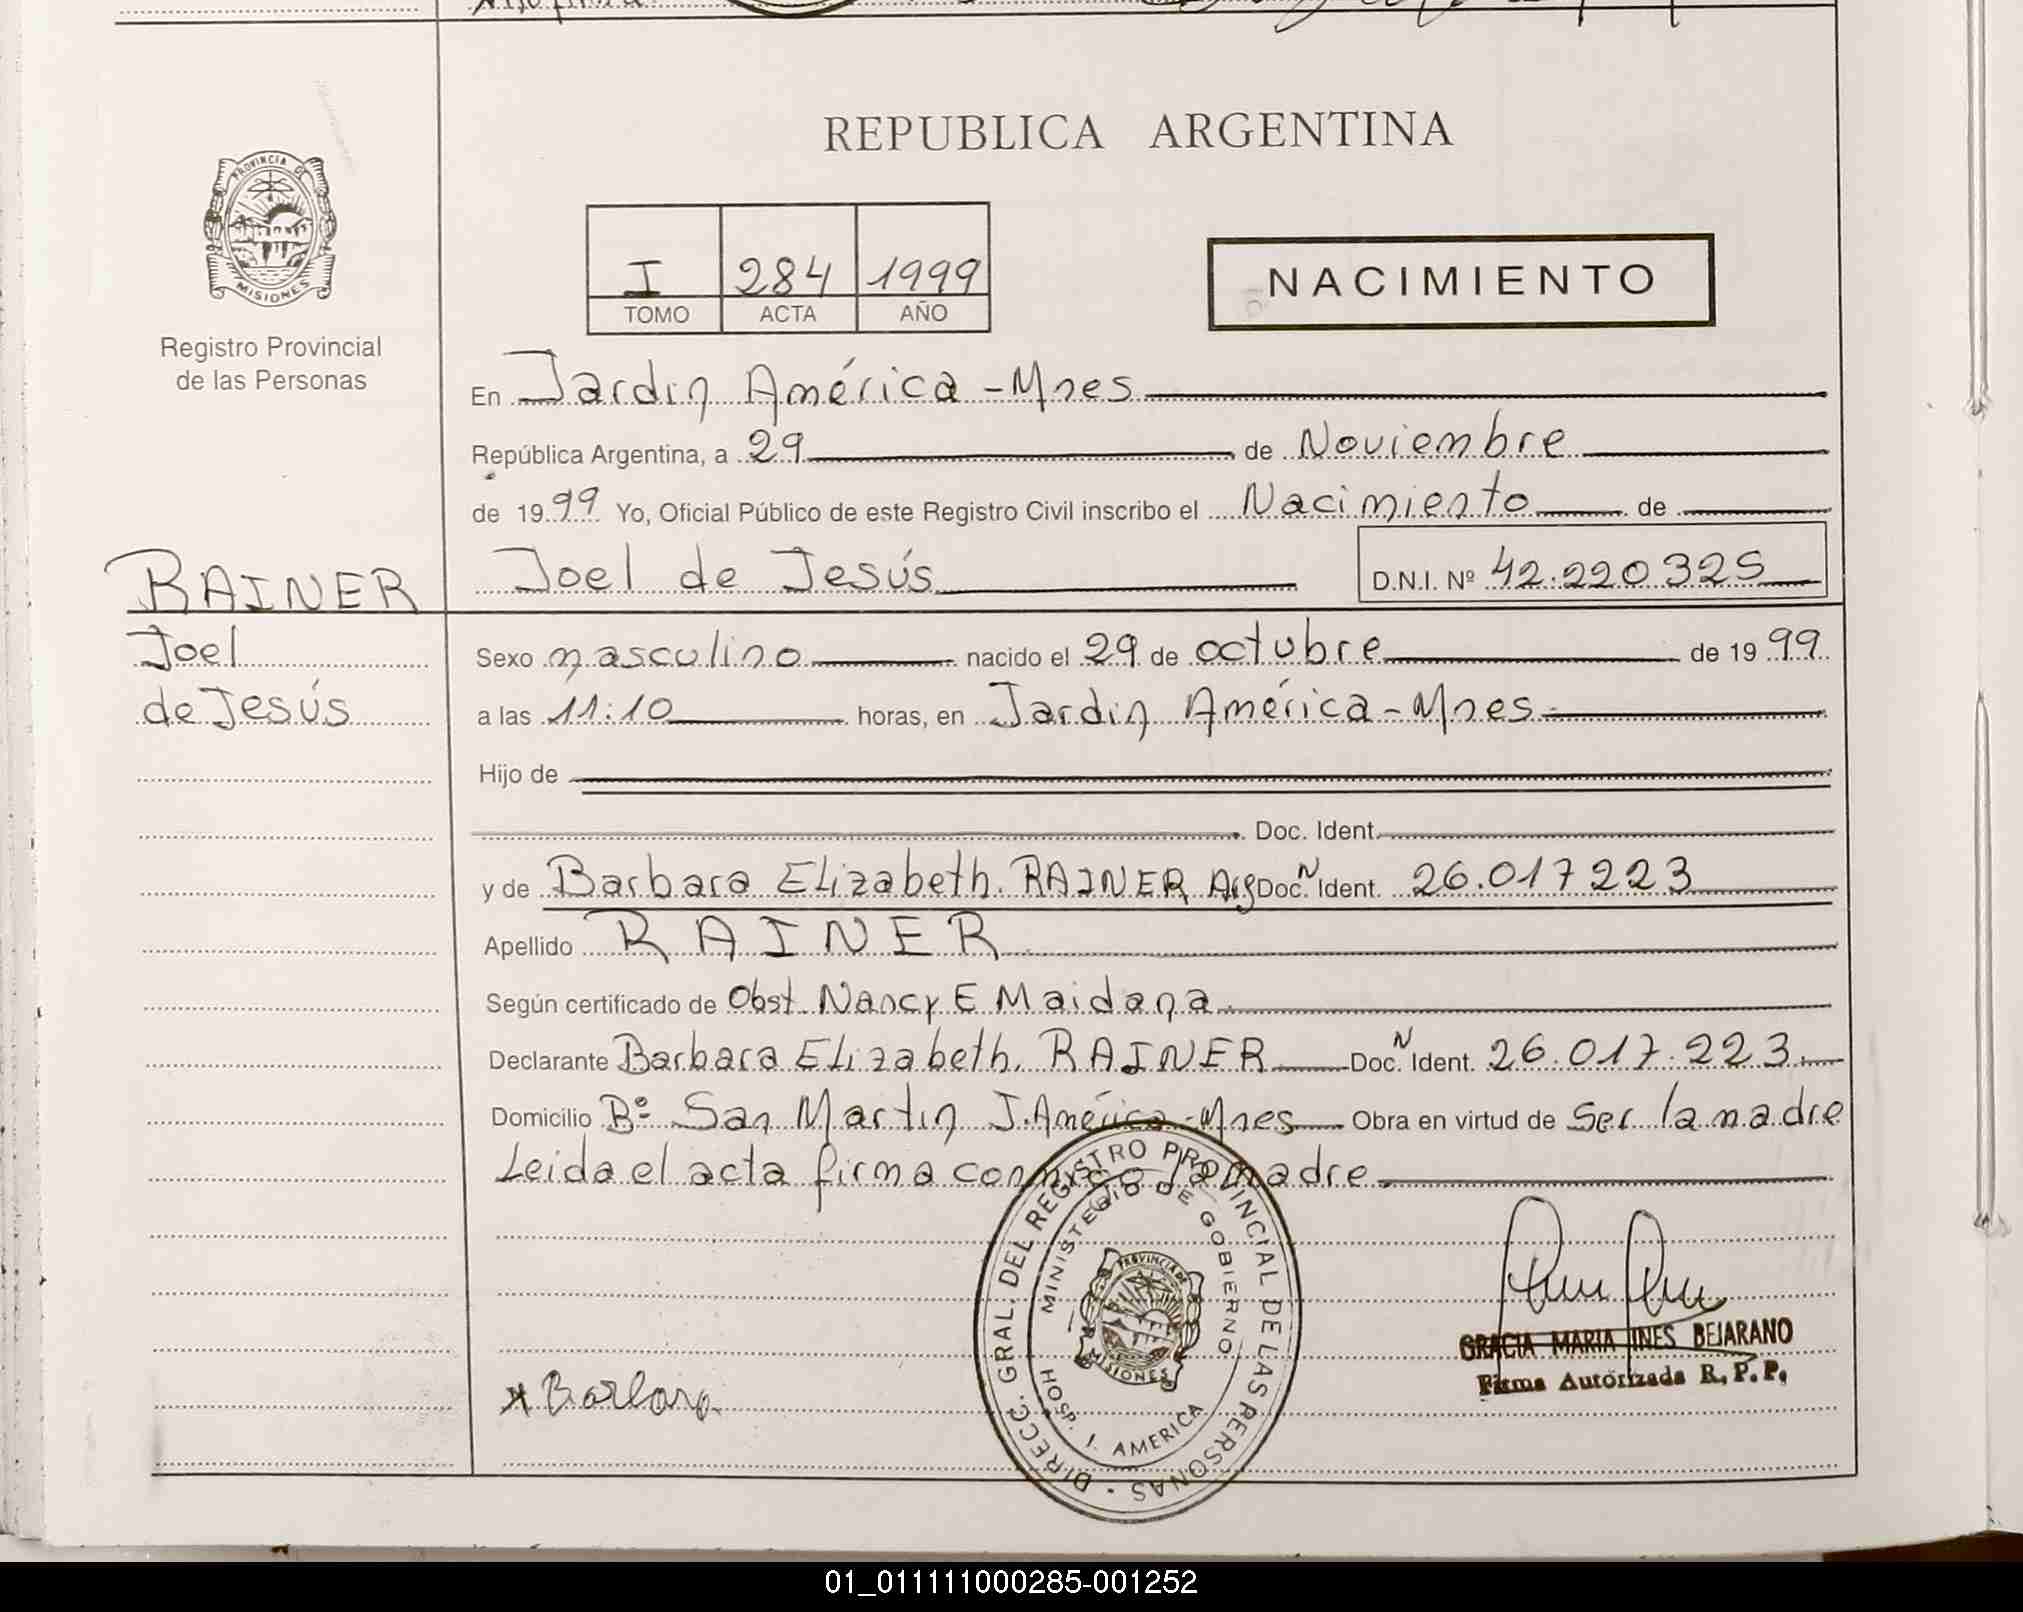 REPUBLICA ARGENTINA
PROVINCIA DE
MISIONES
Registro Provincial
de las Personas
I 284 1999
TOMO ACTA AÑO
NACIMIENTO
En Jardin América - Mnes
República Argentina, a 29 de Noviembre
de 1999 Yo, Oficial Público de este Registro Civil inscribo el Nacimiento de
Joel de Jesús D.N.I. Nº 42.220325
RAINER
Joel
de Jesús
Sexo masculino nacido el 29 de octubre de 1999
a las 11:10 horas, en Jardin América - Mnes
Hijo de
Doc. Ident.
y de Barbara Elizabeth RAINER Arg Doc. N Ident. 26.017223
Apellido RAINER
Según certificado de Obst. Nancy E Maidana
Declarante Barbara Elizabeth RAINER Doc. N Ident. 26.017.223
Domicilio Bº San Martin J. América - Mnes Obra en virtud de ser la madre
Leida el acta firma conmigo la madre.
DIRECC. GRAL. DEL REGISTRO PROVINCIAL DE LAS PERSONAS
MINISTERIO DE GOBIERNO
PROVINCIA DE
MISIONES
HOSP. J. AMERICA
GRACIA MARIA INES BEJARANO
Firma Autorizada R. P. P.
x Barbara
01_011111000285-001252